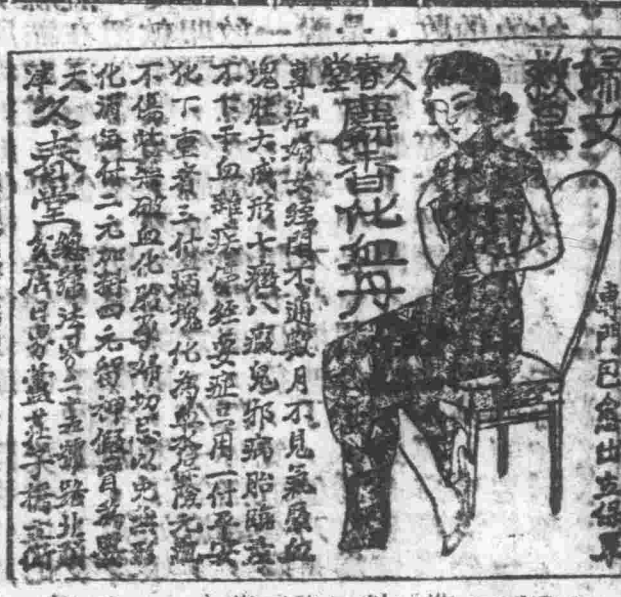 婦女
救星
專門包愈出立保單
久春堂
麝香化血丹
專治婦女經閉不通數月不見氣裹血
塊肚大成形七癥八瘕鬼邪病胎臨產
不下干血癆症停經要症只用一付平安
化下重者三付病塊化為無
不傷 破血化 孕婦切忌以免
化酒每付二元加料四元留神假冒
天津
久春堂
總號法界二十五號路北頭
分店日界蘆莊子橋